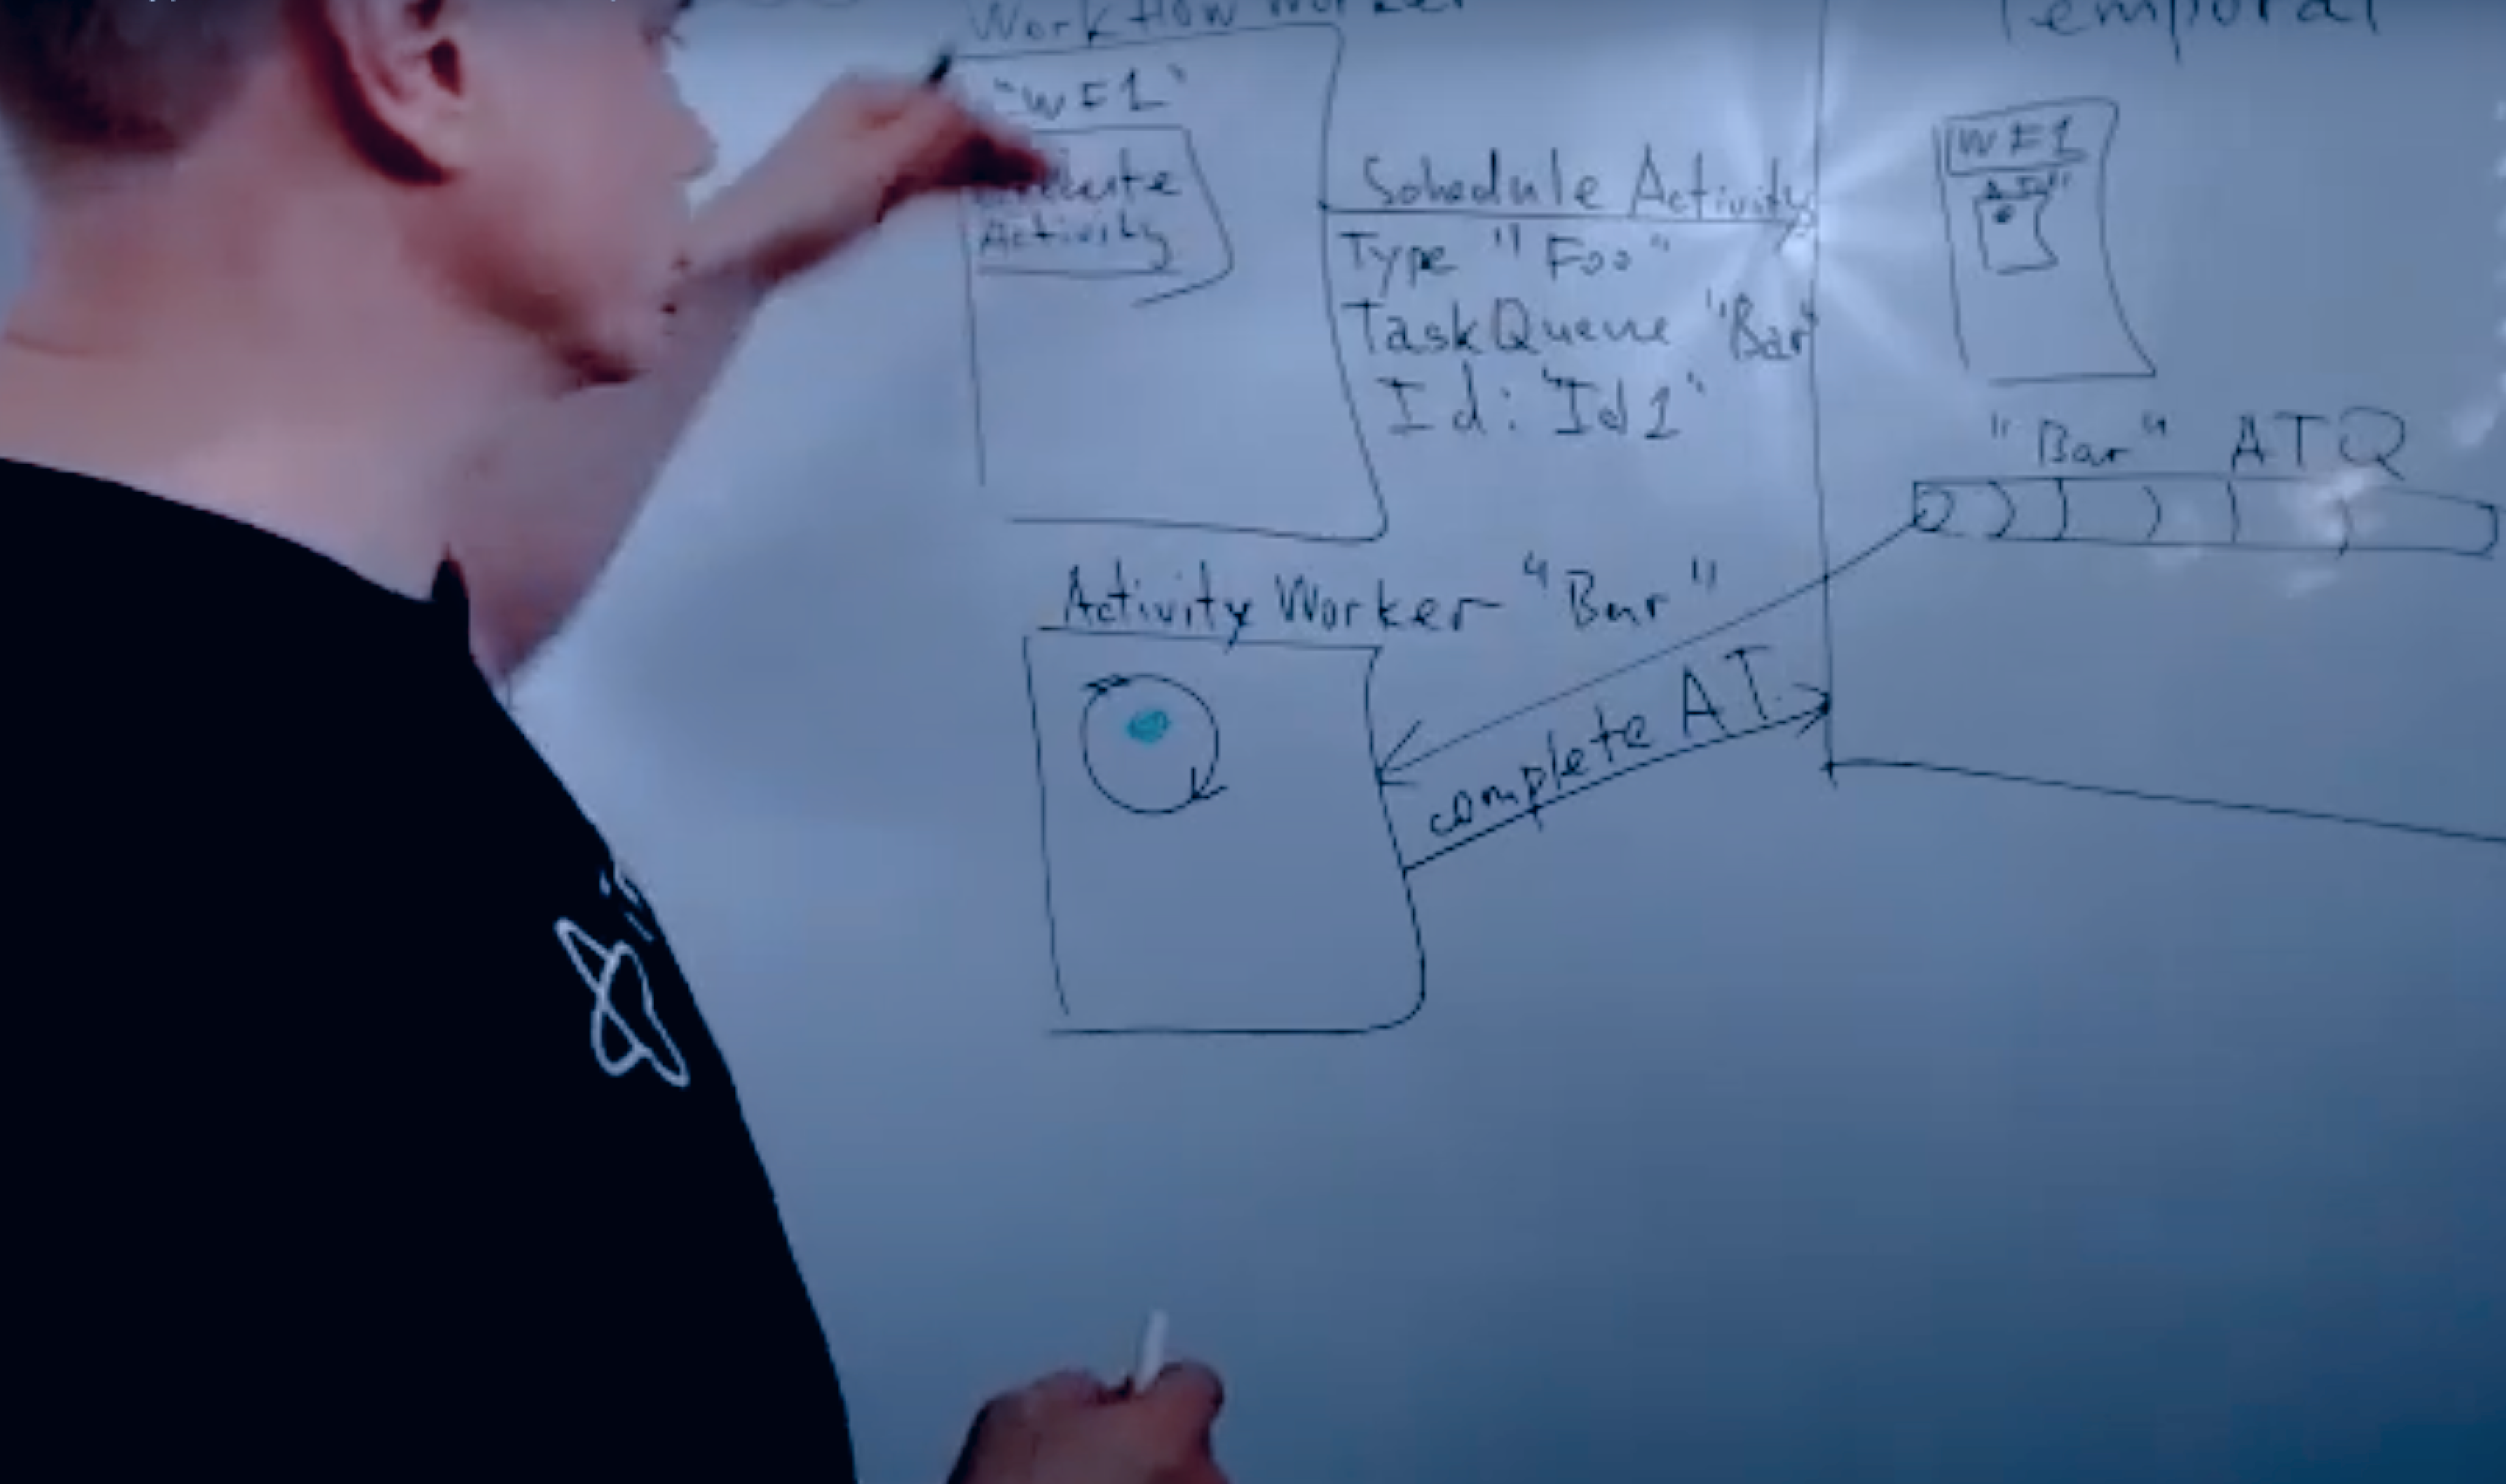 Workflow Worker
Temporal
"WF1"
Execute
Activity
Schedule Activity
Type "Foo"
TaskQueue "Bar"
Id: "Id1"
WF1
"Bar" ATQ
Activity Worker "Bar"
complete A.T.